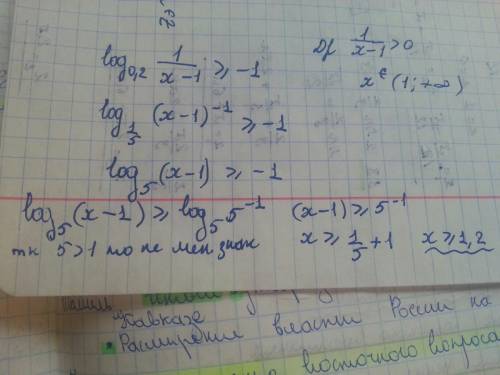 log₀,₂ 1/(x-1) ≥ -1
Df 1/(x-1) > 0
x ∈ (1; +∞)
log_{1/5} (x-1)⁻¹ ≥ -1
log₅ (x-1) ≥ -1
log₅ (x-1) ≥ log₅ 5⁻¹
(x-1) ≥ 5⁻¹
тк 5>1 то не мен знак
x ≥ 1/5 + 1
x ≥ 1,2
Кавказе
• Расширения власти России на
восточного вопроса